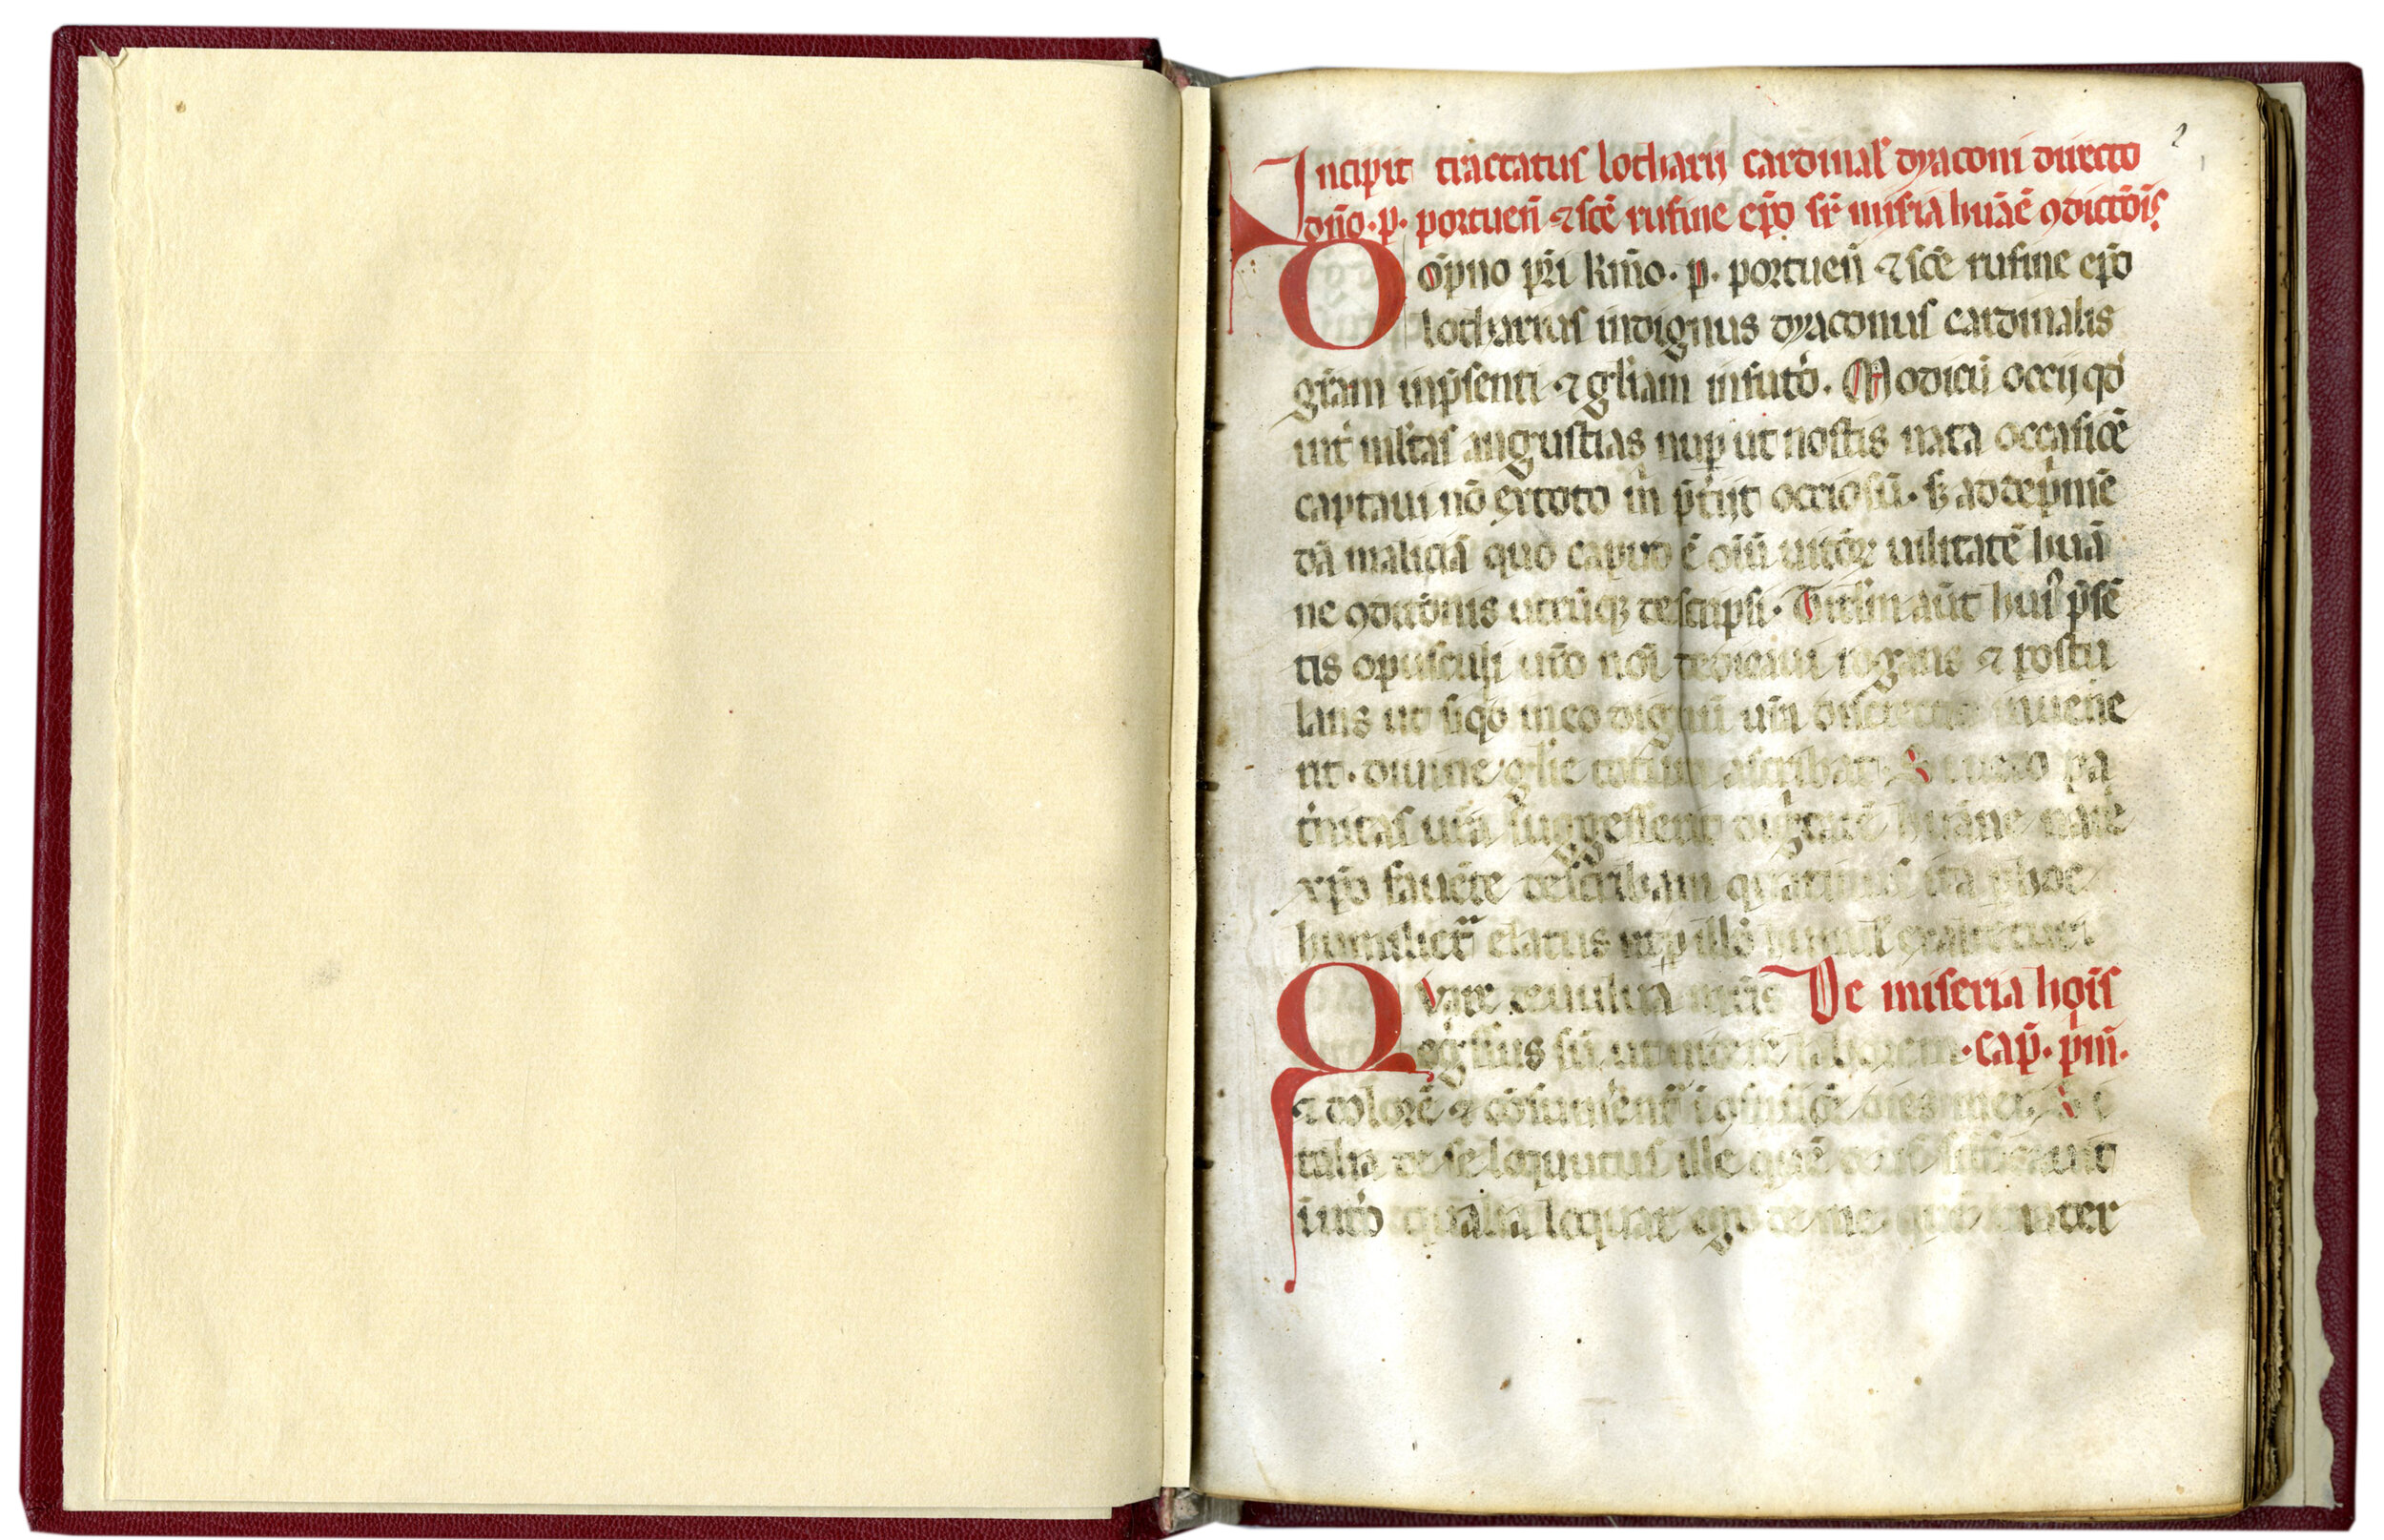 2
Incipit tractatus lotharii cardinal' dyaconi directo
dn̄o · p · portueñ ⁊ sc̄e rufine ep̄o sr̄ mis̄ia hūāe ꝯdictōis
Domp̄no pr̄i kr̄mo · p · portueñ ⁊ sc̄e rufine ep̄o
lotharius indignus dyaconus cardinalis
gr̄am in p̄senti ⁊ gl̄iam in futō. Modicū occij qd̄
int̄ ml̄tas angustias nup̄ ut nostis nata occasiōē
captaui nō ex toto in p̄tijt occiosū · sȝ ad dep̄mē
dā maliciā quo caput ē oīū uitōꝝ uilitatē hūā
ne ꝯditōnis utcūqȝ descripsi · Titl̄m aūt huiꝰ p̄sē
tis opusculi ur̄o nōī dedicaui rogans ⁊ postu
lans ut siqd̄ in eo dignū ur̄a discretio inuene
rit · diuine gl̄ie totum ascribat. Si uero pa
t̄nitas ur̄a suggesserit dignitatē hūāne nat̄e
xp̄o fauēte describam quatinus ita p̄ hoc
humiliet̄ elatus ut p̄ illō humil' exaltetur.
Quare de uulua mr̄is De miseria hoīs
egssus sū ut uiderē laborem · cap̄ · pm̄ ·
⁊ dolorē ⁊ cōsumerent̄ ī ꝯfusiōē dies mei. Si
talia de se loquutus ille quē deus sctificauit
ī utō qualia loquar ego de me quē mater